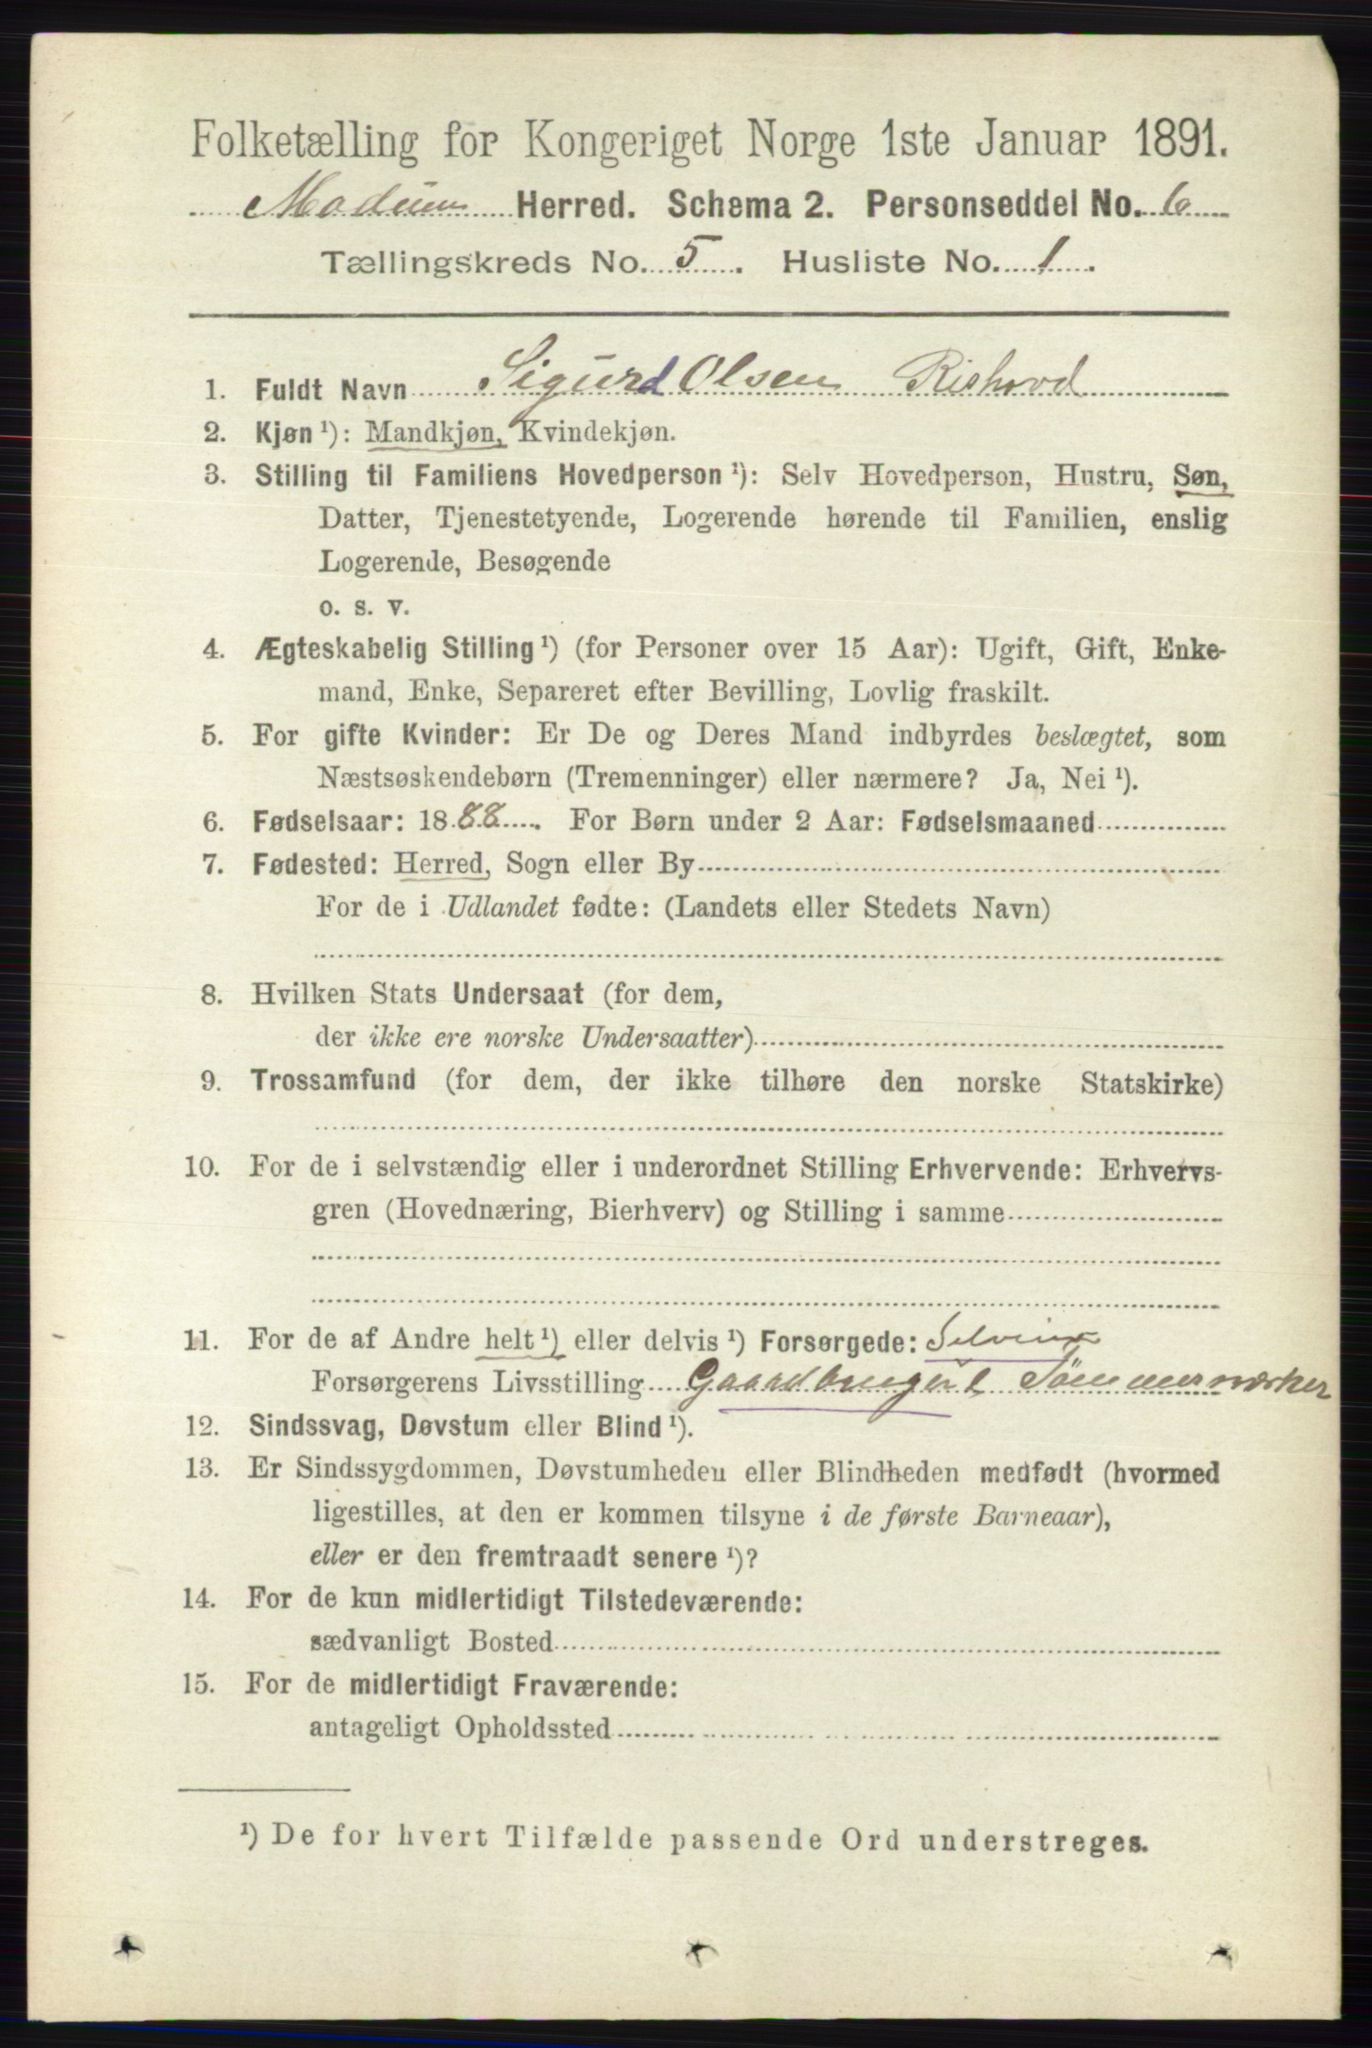 Folketælling for Kongeriget Norge 1ste Januar 1891.
Modum Herred. Schema 2. Personseddel No. 6
Tællingskreds No. 5. Husliste No. 1.
1. Fuldt Navn Sigurd Olsen Rishovd
2. Kjøn ¹): Mandkjøn, Kvindekjøn.
3. Stilling til Familiens Hovedperson ¹): Selv Hovedperson, Hustru, Søn,
Datter, Tjenestetyende, Logerende hørende til Familien, enslig
Logerende, Besøgende
o. s. v.
4. Ægteskabelig Stilling ¹) (for Personer over 15 Aar): Ugift, Gift, Enke-
mand, Enke, Separeret efter Bevilling, Lovlig fraskilt.
5. For gifte Kvinder: Er De og Deres Mand indbyrdes beslægtet, som
Næstsøskendebørn (Tremenninger) eller nærmere? Ja, Nei ¹).
6. Fødselsaar: 1888. For Børn under 2 Aar: Fødselsmaaned
7. Fødested: Herred, Sogn eller By
For de i Udlandet fødte: (Landets eller Stedets Navn)
8. Hvilken Stats Undersaat (for dem,
der ikke ere norske Undersaatter)
9. Trossamfund (for dem, der ikke tilhøre den norske Statskirke)
10. For de i selvstændig eller i underordnet Stilling Erhvervende: Erhvervs-
gren (Hovednæring, Bierhverv) og Stilling i samme
11. For de af Andre helt ¹) eller delvis ¹) Forsørgede: Selveier
Forsørgerens Livsstilling Gaardbruger & Tømmermærker
12. Sindssvag, Døvstum eller Blind ¹).
13. Er Sindssygdommen, Døvstumheden eller Blindheden medfødt (hvormed
ligestilles, at den er kommen tilsyne i de første Barneaar),
eller er den fremtraadt senere ¹)?
14. For de kun midlertidigt Tilstedeværende:
sædvanligt Bosted
15. For de midlertidigt Fraværende:
antageligt Opholdssted
¹) De for hvert Tilfælde passende Ord understreges.